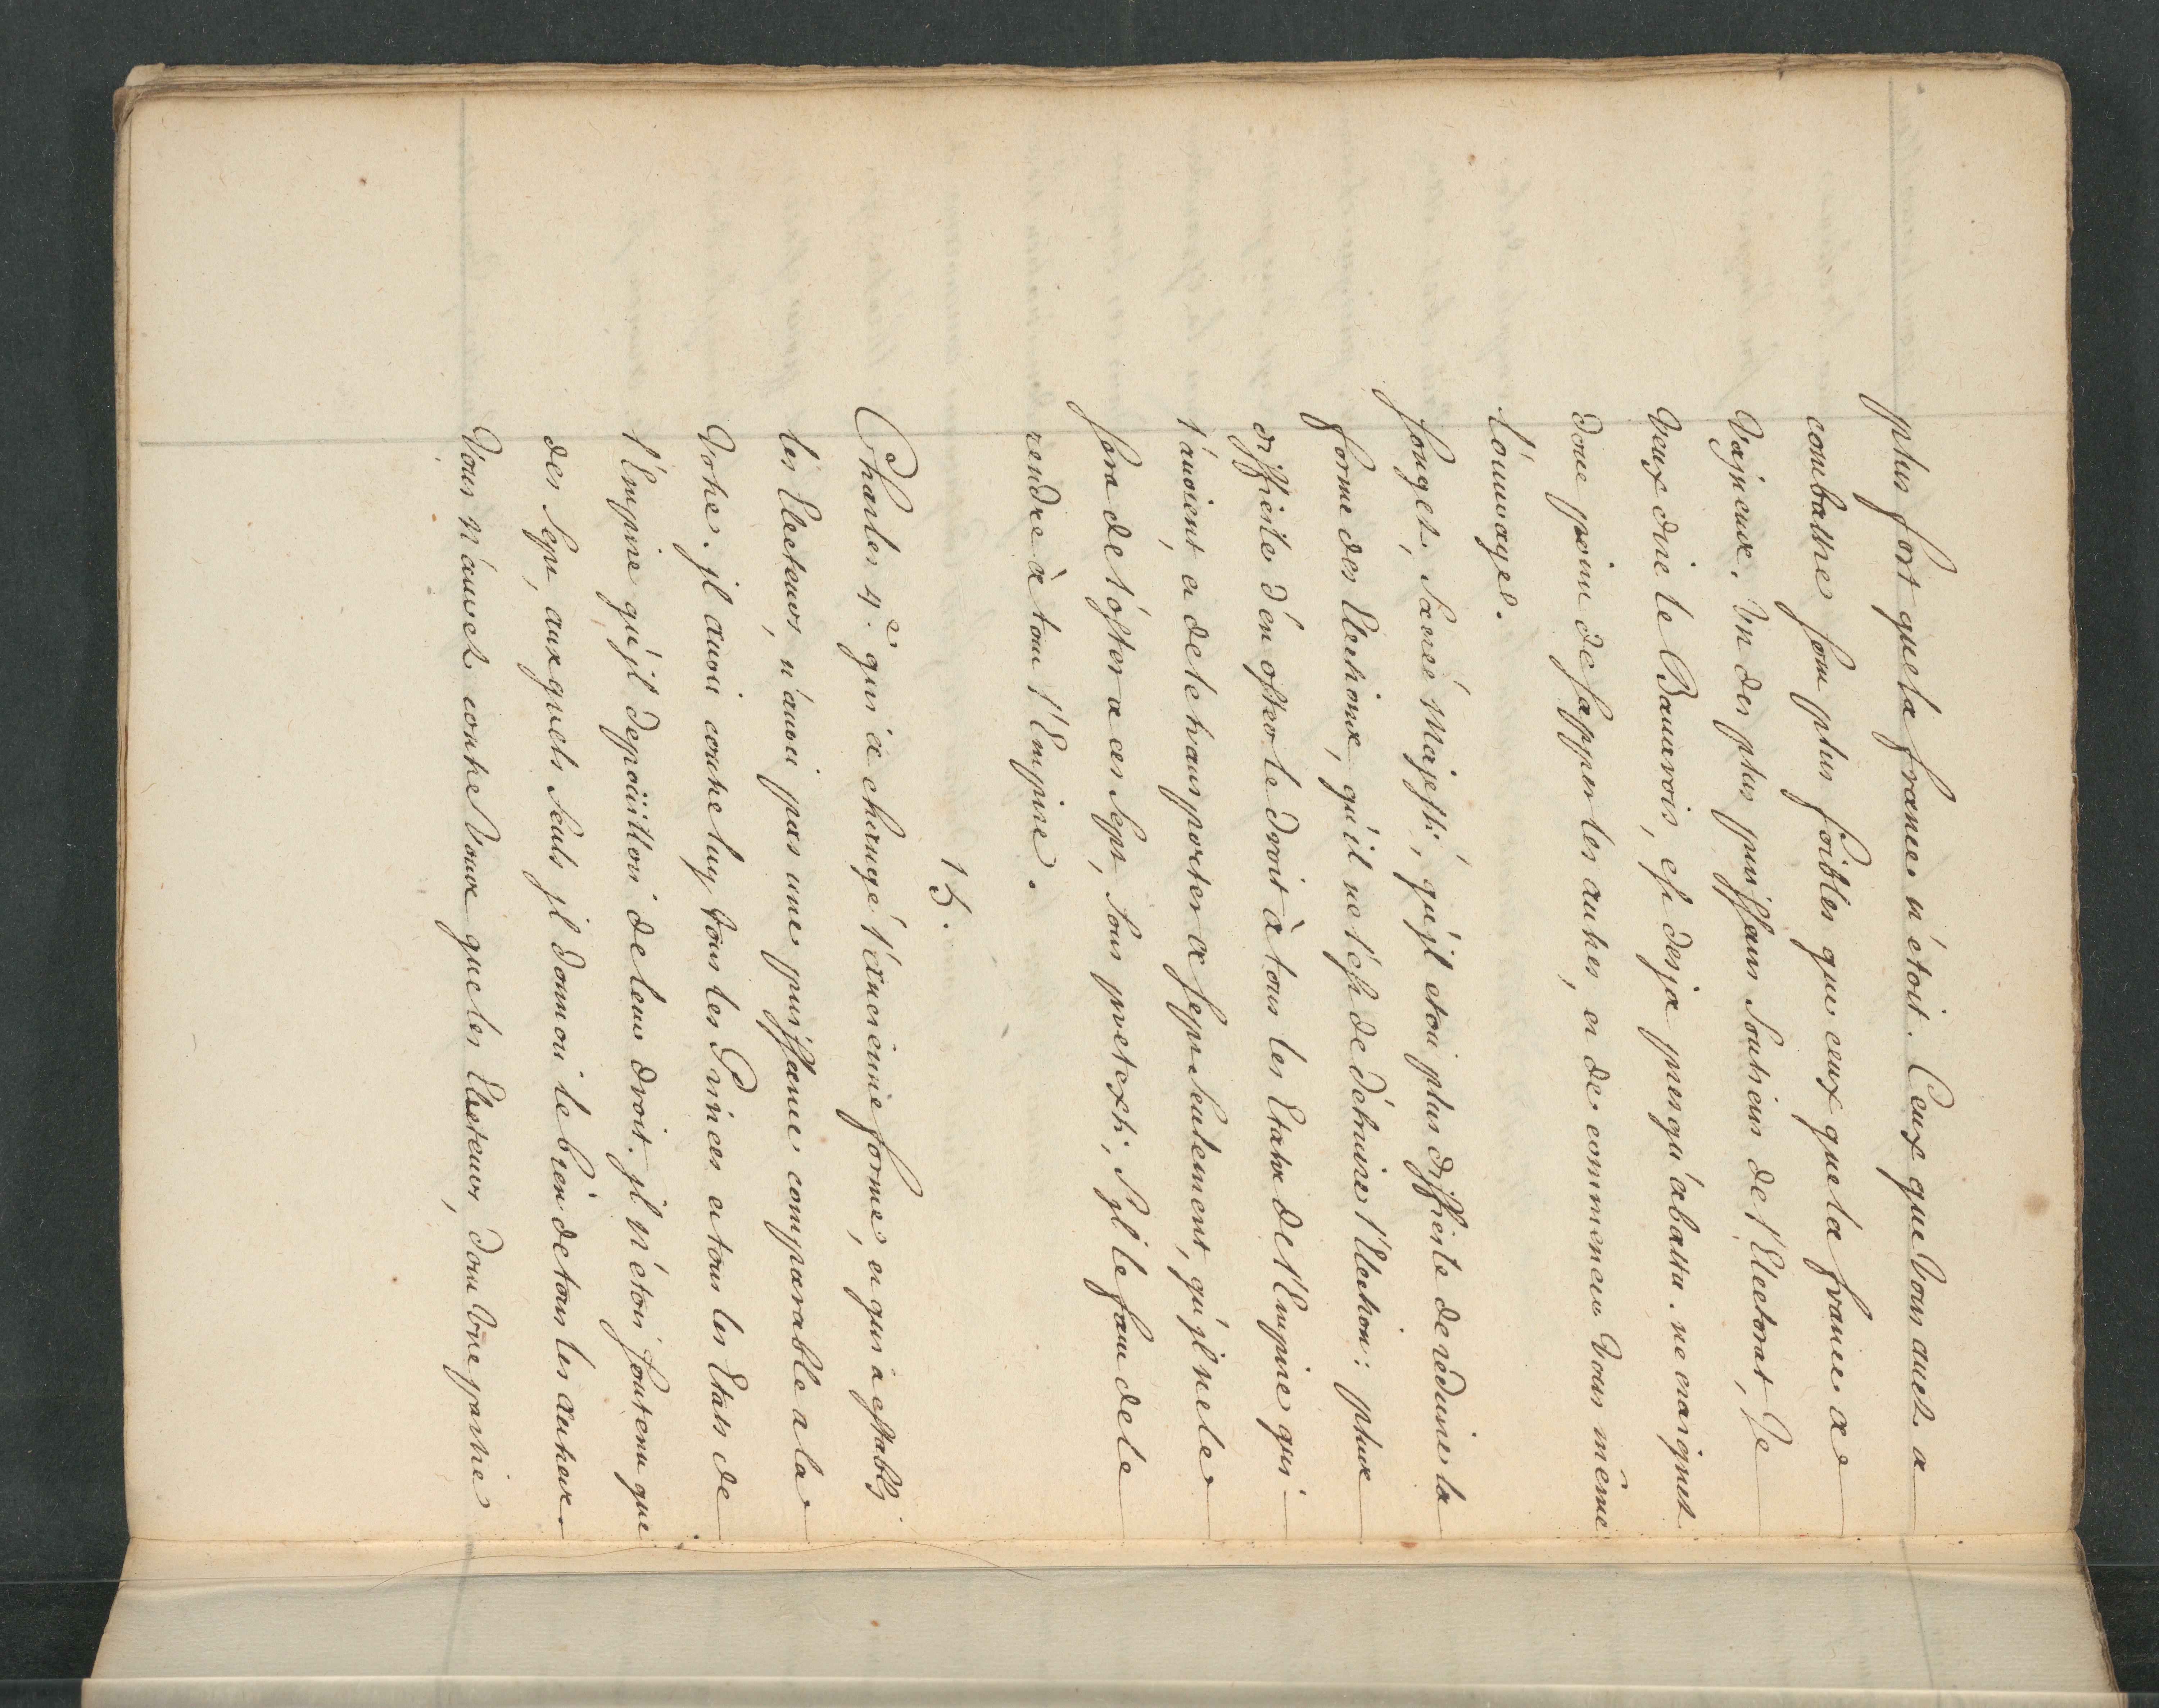 plus fort que la france n'étoit. Ceux que Vous avez a
combattre sont plus foibles que ceux que la france a
Vajncux. Un des plus puissans Soutiens de l'Electorat, Je
veux dire le Bavarois, est desja presqu'abattu. ne craignez
donc point de sapper les autres, et de commencer Vous même
l'ouvrage.
songez, Sacrée Majesté, qu'jl etoit plus difficile de réduire la
forme des Elections, qu'il ne l'est de détruire l'Election: plus
difficile d'en oster le droit à tous les Etats de l'Empire qui
l'avoient, et de le transporter a sept seulement, qu'jl ne le
sera de l'oster a ces Sept, sous pretexte, s'jl le faut de le
rendre à tout l'Empire.
15.
Charles 4.e qui a changé l'ancienne forme, et qui a establi
les Electeurs, n'avoit pas une puissance comparable a la
Votre. jl avoit contre luy tous les Princes et tous les Etats de
l'Empire qu'jl depoüilloit de leur droit. jl n'étoit soutenu que
des Sept, aux quels seuls jl donnoit le bien de tous les autres.
Vous n'avez contre Vous que les Electeurs, dont Une partie